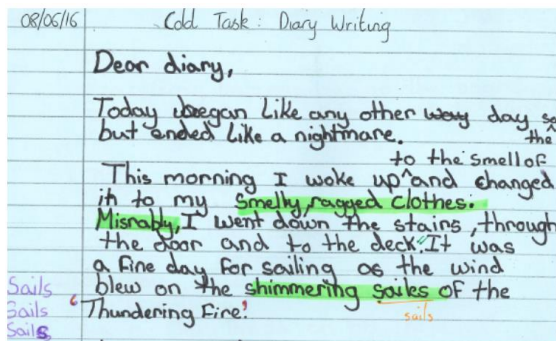 08/06/16 Cold Task: Diary Writing
Dear diary,
Today began like any other way day so
but ended like a nightmare. the
to the smell of
This morning I woke up ^ and changed
in to my smelly, ragged clothes.
Misrably, I went down the stairs, through
the door and to the deck. It was
a fine day for sailing as the wind
blew on the shimmering sailes of the
'Thundering Fire'.
sails
Sails
Sails
Sails